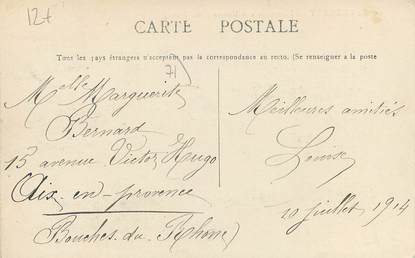 12f
CARTE POSTALE
Tous les pays étrangers n'acceptent pas la correspondance au recto. (Se renseigner à la poste
71
Melle Marguerite
Bernard
15 avenue Victor Hugo
Aix-en-provence
Bouches-du-Rhone)
Meilleures amitiés
Louise
10 juillet 1914